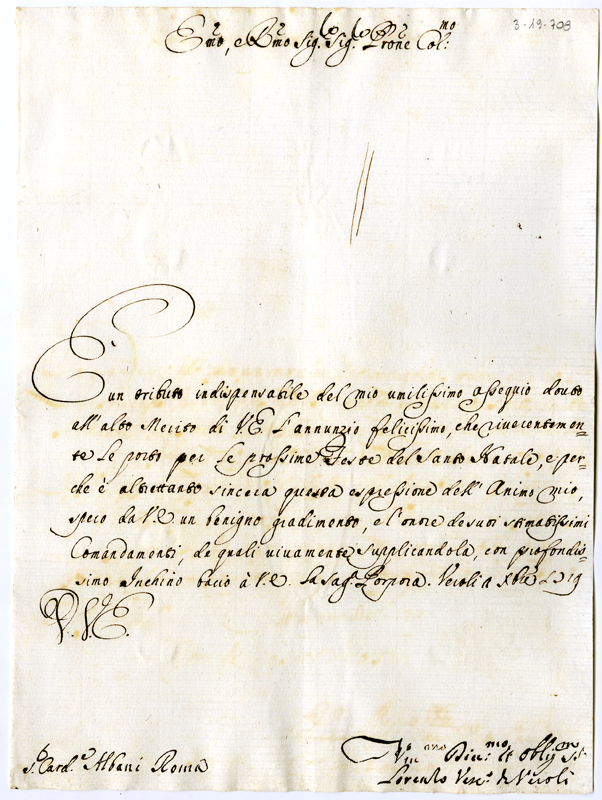 3-19-708
Emo, e Rmo Sig.r Sig.r Prone Col:mo
E' un tributo indispensabile del mio umilissimo assequio douto
all'alto Merito di V.E. L'annunzio felicissimo, che riuerentemen=
te Le porto per Le prossime Feste del Santo Natale, e per=
che è altrettanto sincera questa espressione dell'Animo mio,
spero da V.E. un benigno gradimento, e l'onore de suoi stimatissimi
Comandamenti, de quali viuamente supplicandola, con profondis=
simo Inchino bacio à V.E. La Sag. Porpora. Veroli a Xbre 1719
D. V. E.
S. Card.e Albani Roma
Vmo Diu.mo et Obligmo S.r
Lorenzo Vesc.o di Veroli